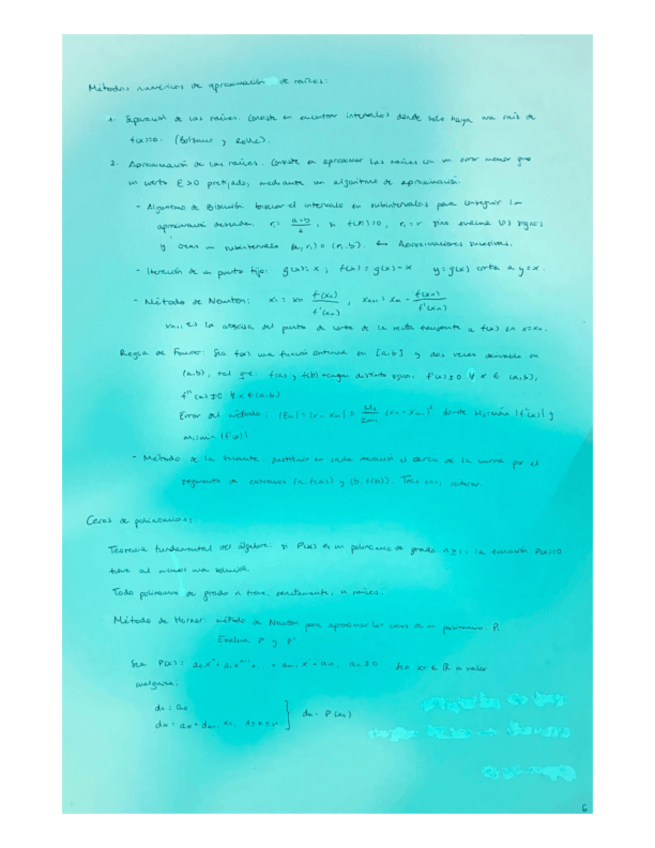 Métodos numéricos de aproximación de raíces:
1. Separación de las raíces. Consiste en encontrar intervalos donde solo haya una raíz de
f(x)=0. (Bolzano y Rolle).
2. Aproximación de las raíces. Consiste en aproximar las raíces con un error menor que
un cierto E>0 prefijado, mediante un algoritmo de aproximación.
- Algoritmo de Bisección: bisecar el intervalo en subintervalos para conseguir la
aproximación deseada. r₁ = (a+b)/2, si f(r₁)=0, r₁=r sino evalúa los signos
y subintervalo (a, r₁) o (r₁, b). Aproximaciones sucesivas.
- Iteración de un punto fijo: g(x)=x; f(x)=g(x)-x y=g(x) corta a y=x.
- Método de Newton: x₁ = x₀ f(x₀)/f'(x₀), xₙ₊₁ = xₙ - f(xₙ)/f'(xₙ)
xₙ₊₁ es la abscisa del punto de corte de la recta tangente a f(x) en x=xₙ.
Regla de Fourier: Sea f(x) una función continua en [a,b] y dos veces derivable en
(a,b), tal que: f(a) y f(b) tengan distinto signo. f'(x)≠0 ∀ x ∈ (a,b),
f''(x)≠0 ∀ x ∈ (a,b)
Error del método: |Eₙ| = |r - xₙ| ≤ donde |f''(x)| y
|f'(x)|
- Método de la secante. Sustituir en cada iteración el de la curva por el
segmento de extremos (a, f(a)) y (b, f(b)).
Ceros de polinomios:
Teorema fundamental del álgebra: si P(x) es un polinomio de grado n≥1, la ecuación P(x)=0
tiene al menos una solución.
Todo polinomio de grado n tiene, exactamente, n raíces.
Método de Horner: método de Newton para aproximar los ceros de un polinomio P.
Evalúa P y P'
Sea P(x) = a₀xⁿ + a₁xⁿ⁻¹ + ... + aₙ₋₁x + aₙ, a₀≠0 Sea x₀ ∈ ℝ un valor
cualquiera:
d₀ = a₀
dₖ = aₖ + dₖ₋₁ x₀, 1≤k≤n } dₙ = P(x₀)
6